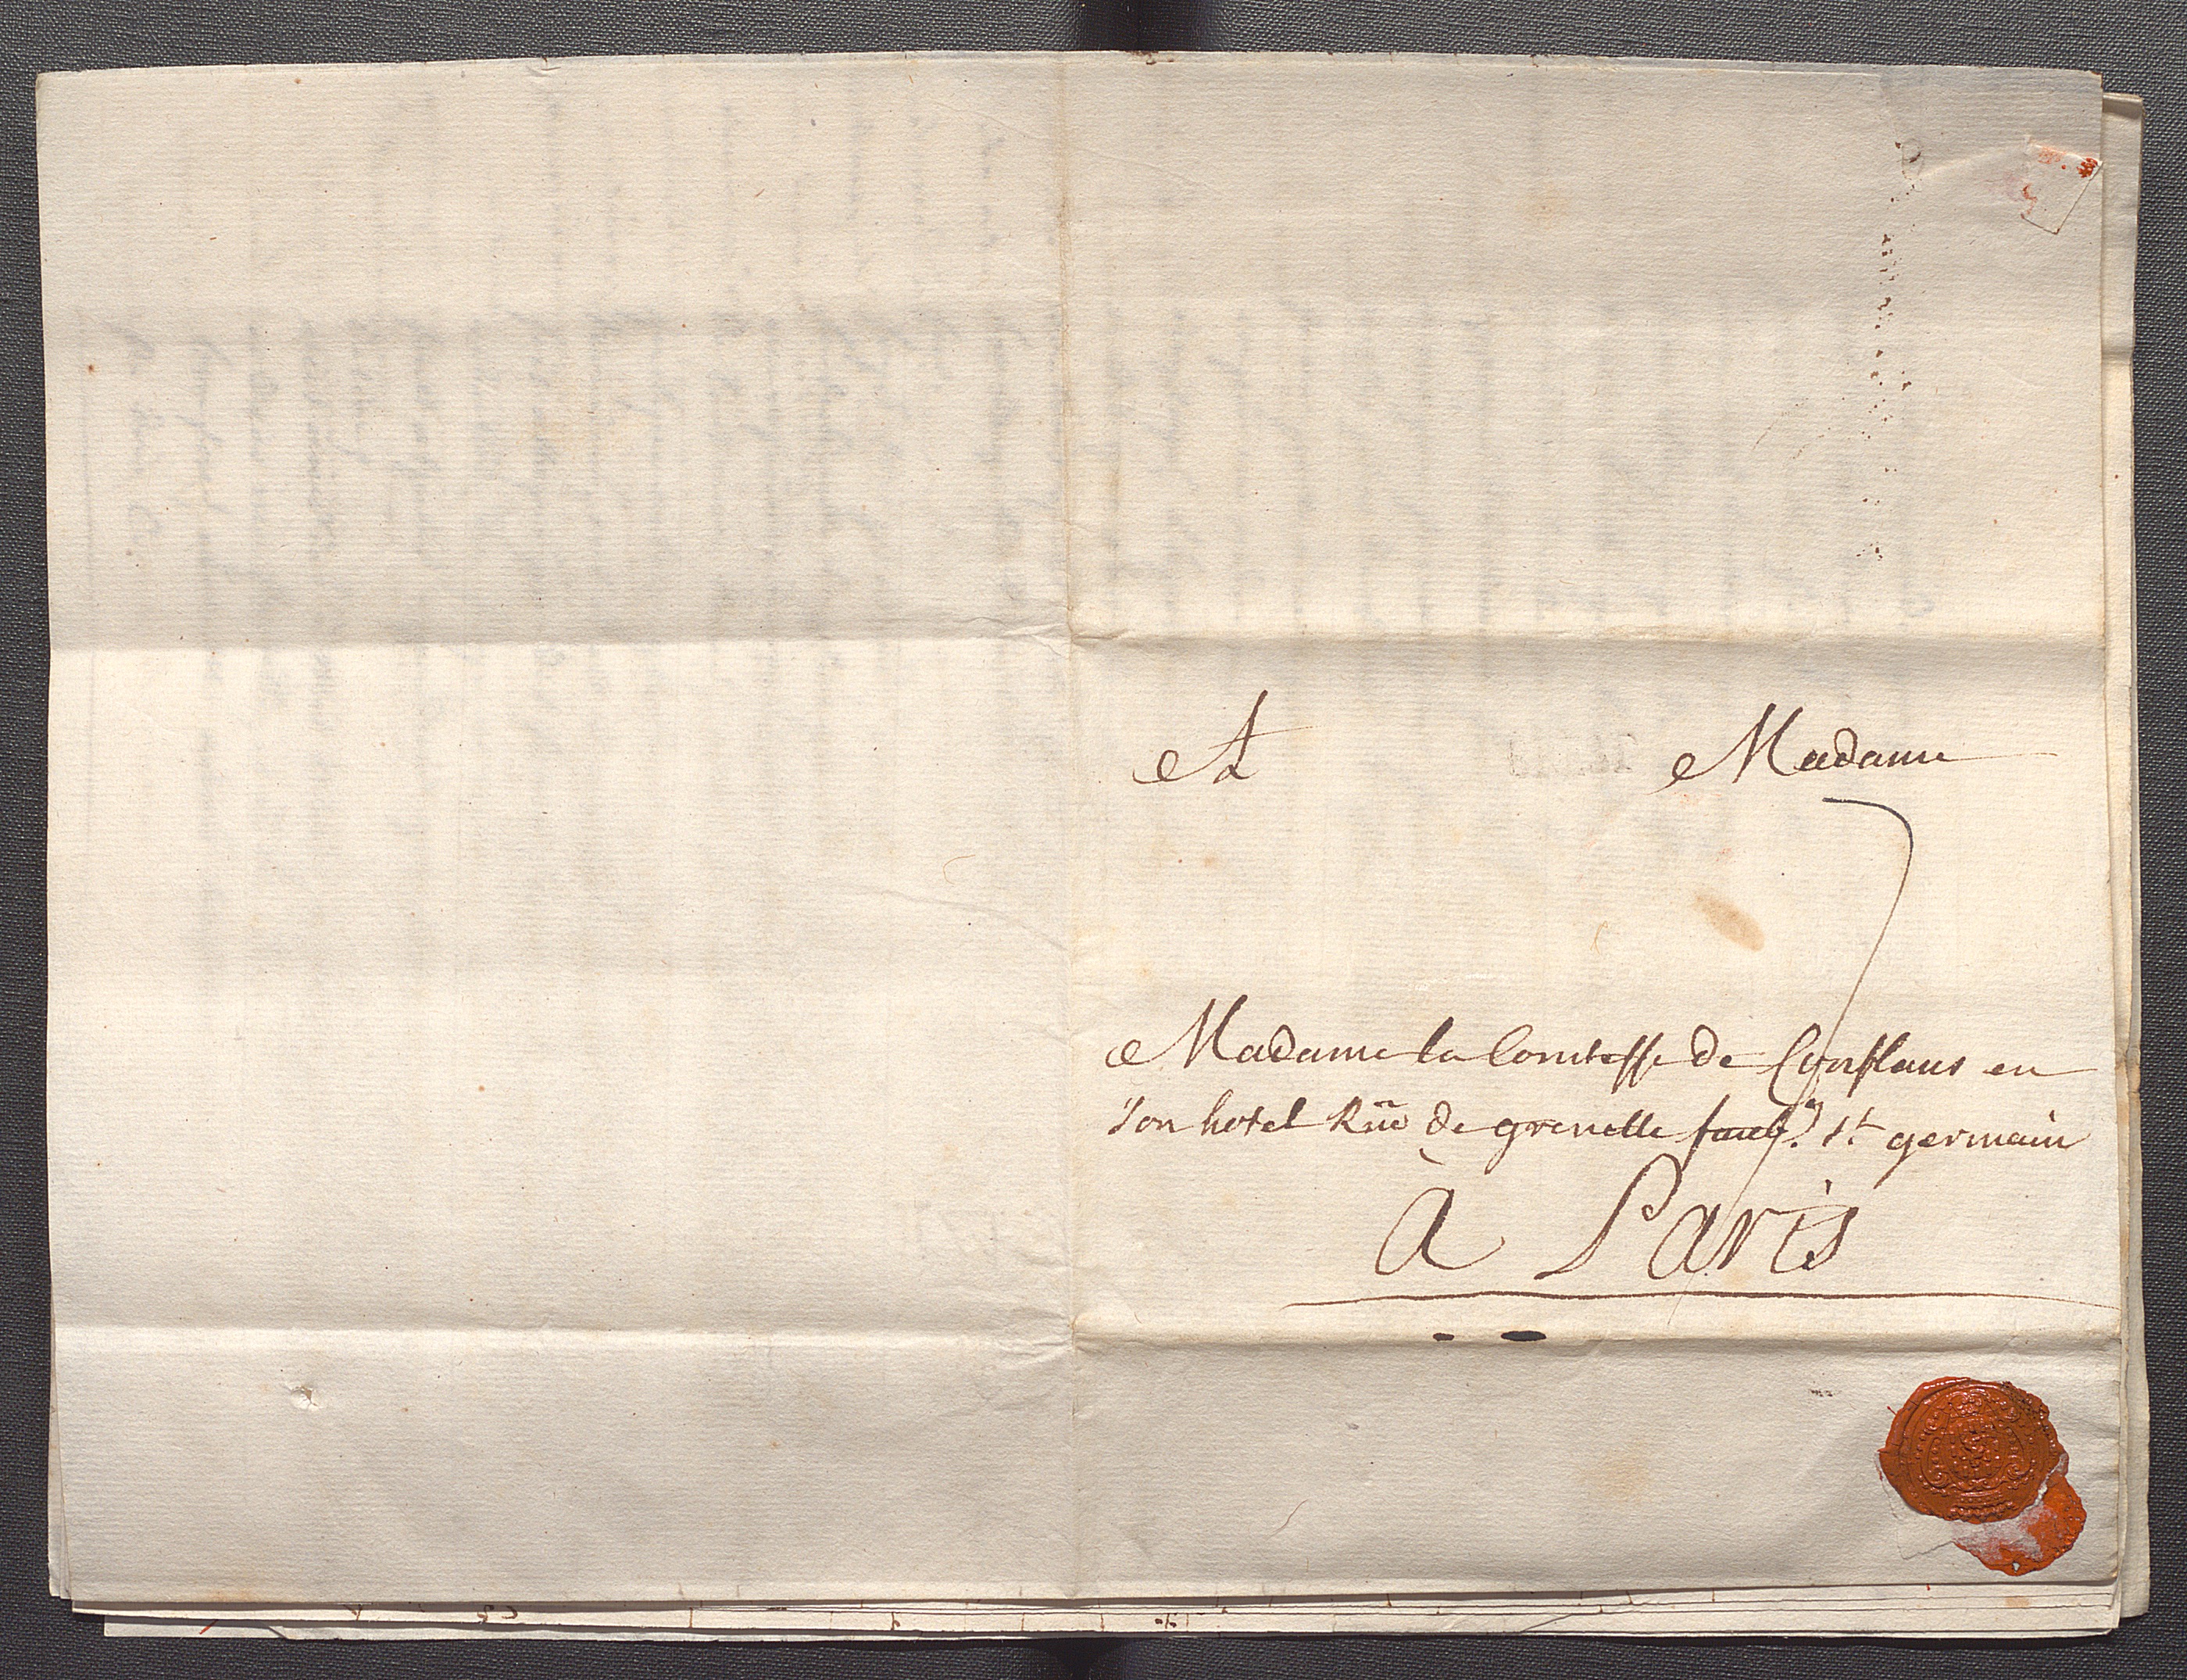 A Madame
Madame la Comtesse de Conflans en
son hotel Rüe de grenelle faubg. st germain
à Paris